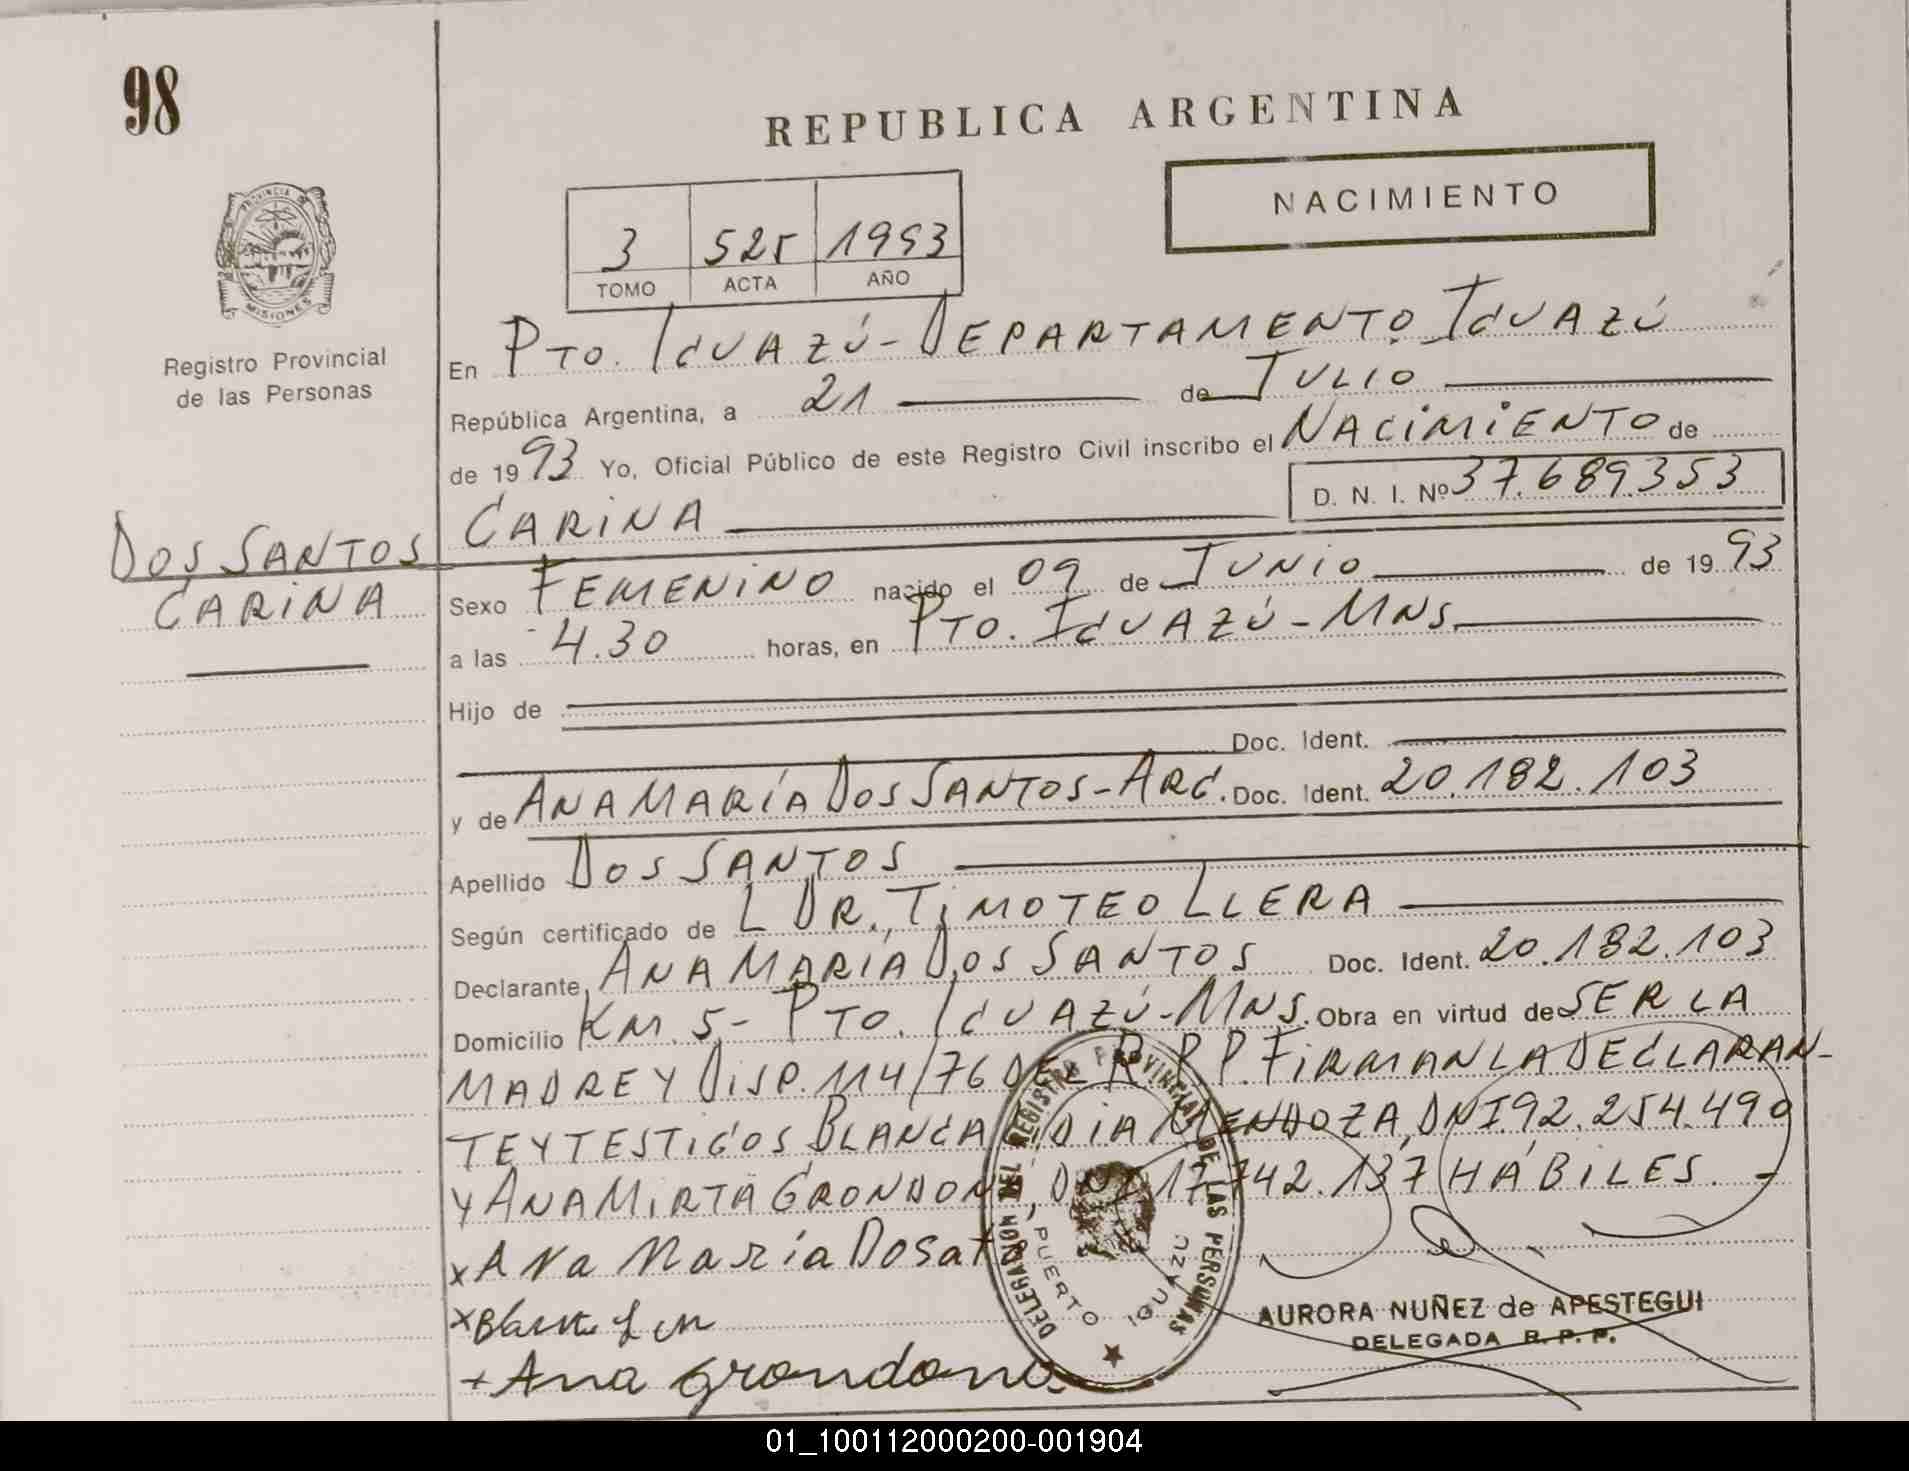 98
REPUBLICA ARGENTINA
NACIMIENTO
3 525 1993
TOMO ACTA AÑO
PROVINCIA DE MISIONES
Registro Provincial
de las Personas
DOS SANTOS
CARINA
En PTO. IGUAZÚ - DEPARTAMENTO IGUAZÚ
República Argentina, a 21 de JULIO
de 1993 Yo, Oficial Público de este Registro Civil inscribo el NACIMIENTO de
CARINA D. N. I. Nº 37.689.353
Sexo FEMENINO nacido el 09 de JUNIO de 1993
a las 4.30 horas, en PTO. IGUAZÚ - MNS.
Hijo de
Doc. Ident.
y de ANA MARÍA DOS SANTOS - ARG. Doc. Ident. 20.182.103
Apellido DOS SANTOS
Según certificado de L DR. TIMOTEO LLERA
Declarante ANA MARÍA DOS SANTOS Doc. Ident. 20.182.103
Domicilio KM 5 - PTO. IGUAZÚ - MNS. Obra en virtud de SER LA
MADRE Y DISP. 114/76 DEL R.P.P. FIRMAN LA DECLARAN-
TE Y TESTIGOS BLANCA MENDOZA, DNI 92.254.490
Y ANA MIRTA GRONDONA, DNI 17.742.137 HÁBILES. -
x Ana María Dosat
x Blanca
+ Ana Grondona
DELEGACION DEL REGISTRO PROVINCIAL DE LAS PERSONAS
PUERTO IGUAZU
AURORA NUÑEZ de APESTEGUI
DELEGADA R. P. P.
01_100112000200-001904